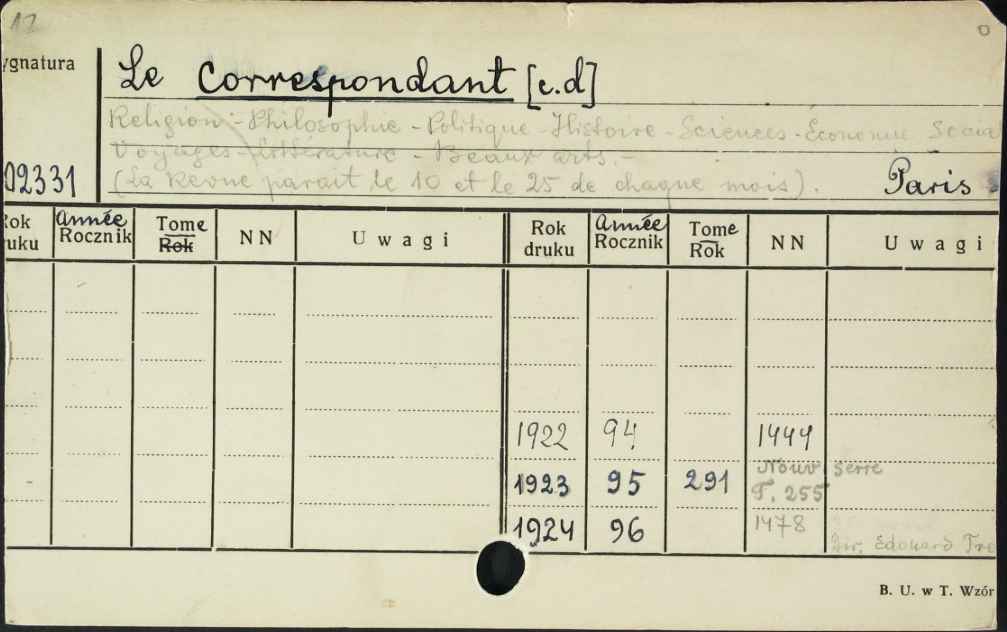 12
o
ygnatura
Le Correspondant [c.d]
Religion - Philosophie - Politique - Histoire - Sciences - Économie Socia
Voyages - Littérature - Beaux arts. -
(La Revue parait le 10 et le 25 de chaque mois).
Paris
02331
Rok ruku Année Rocznik Tome Rok NN Uwagi Rok druku Année Rocznik Tome Rok NN Uwagi
1922 94 1444
Nouv Série
1923 95 291 T. 255
1924 96 1478
Dir. Edouard Tro
B. U. w T. Wzór